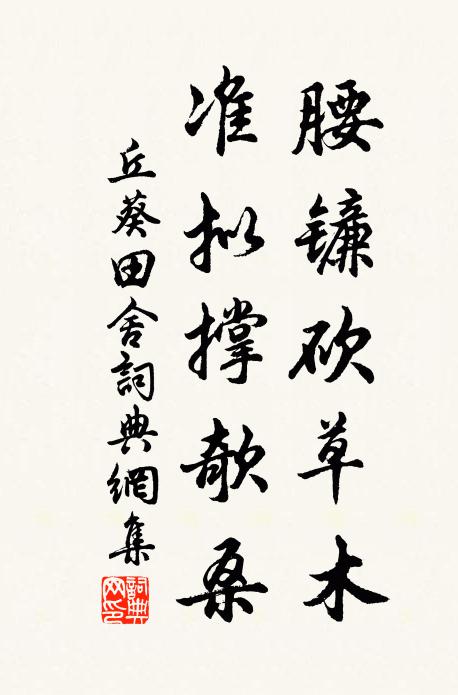 腰镰砍草木
准拟撑欹桑
丘葵田舍詞典網集
詞典
网印